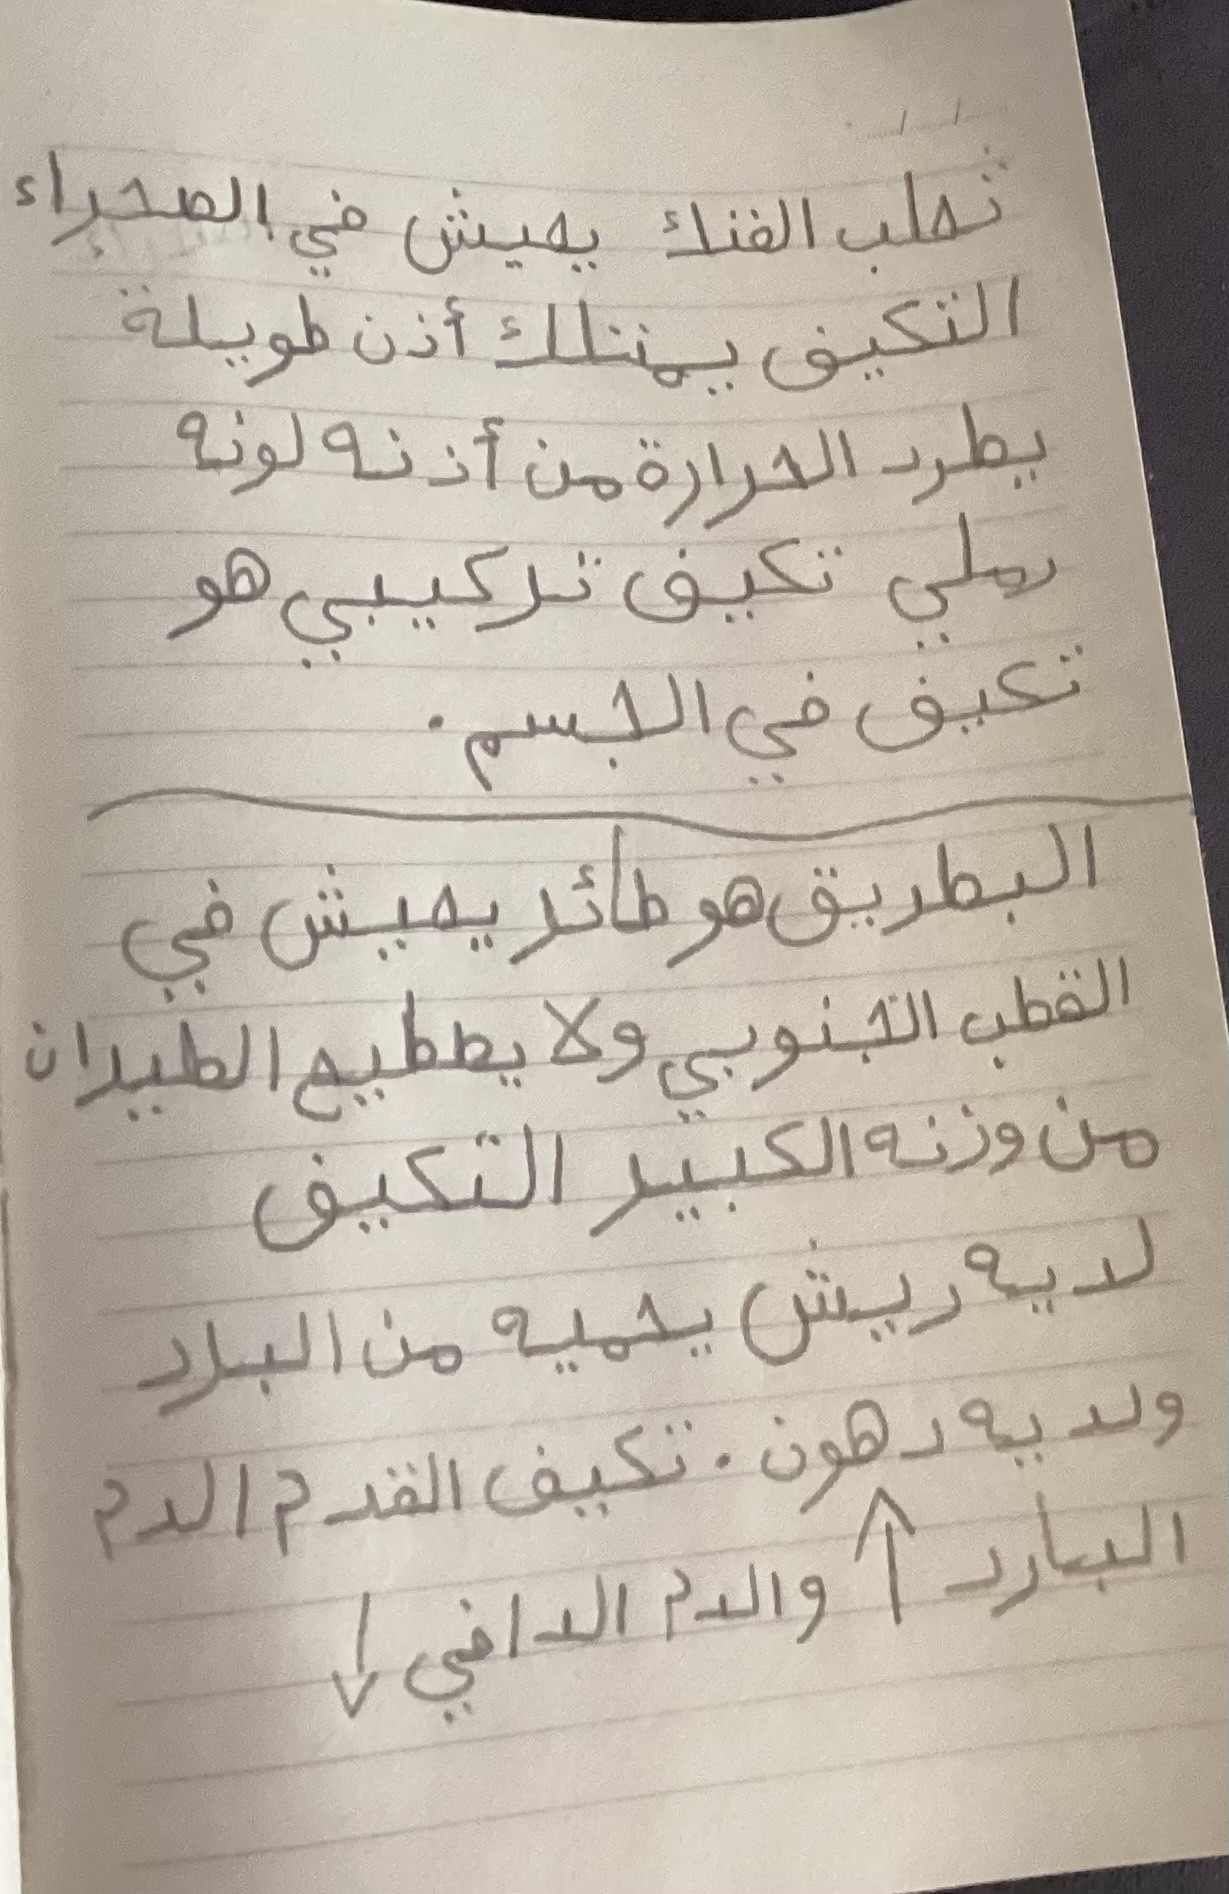 ثعلب الفنك يعيش في الصحراء
التكيف يمتلك أذن طويلة
يطرد الحرارة من أذنه لونه
رملي تكيف تركيبي هو
تكيف في الجسم.
البطريق هو طائر يعيش في
القطب الجنوبي ولا يططيع الطيران
من وزنه الكبير التكيف
لديه ريش يحميه من البلارد
ولديه دهون. تكيف القدم الدم
البارد ↑ والدم الدافي ↓